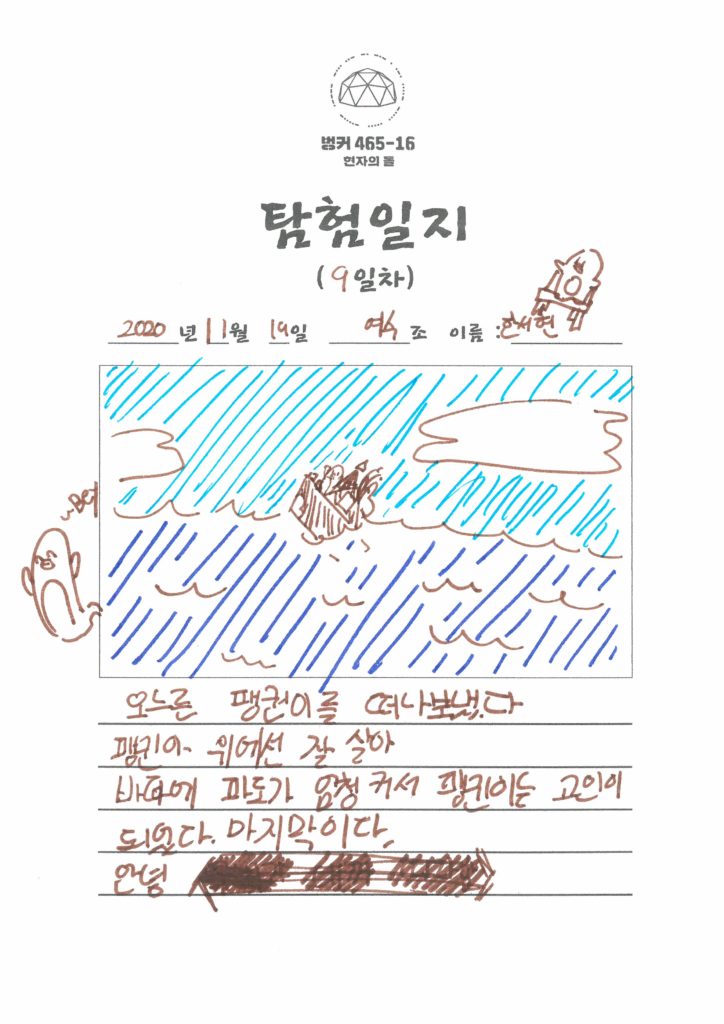 벙커 465-16
현자의 돌
탐험일지
(9일차)
2020 년 11월 19일 여수 조 이름 : 한서현
~BGY
오느른 팽귄이를 떠나보냈다
팽귄아 위에선 잘 살아
바다에 파도가 엄청 커서 팽귄이는 고인이
되었다. 마지막이다.
안녕